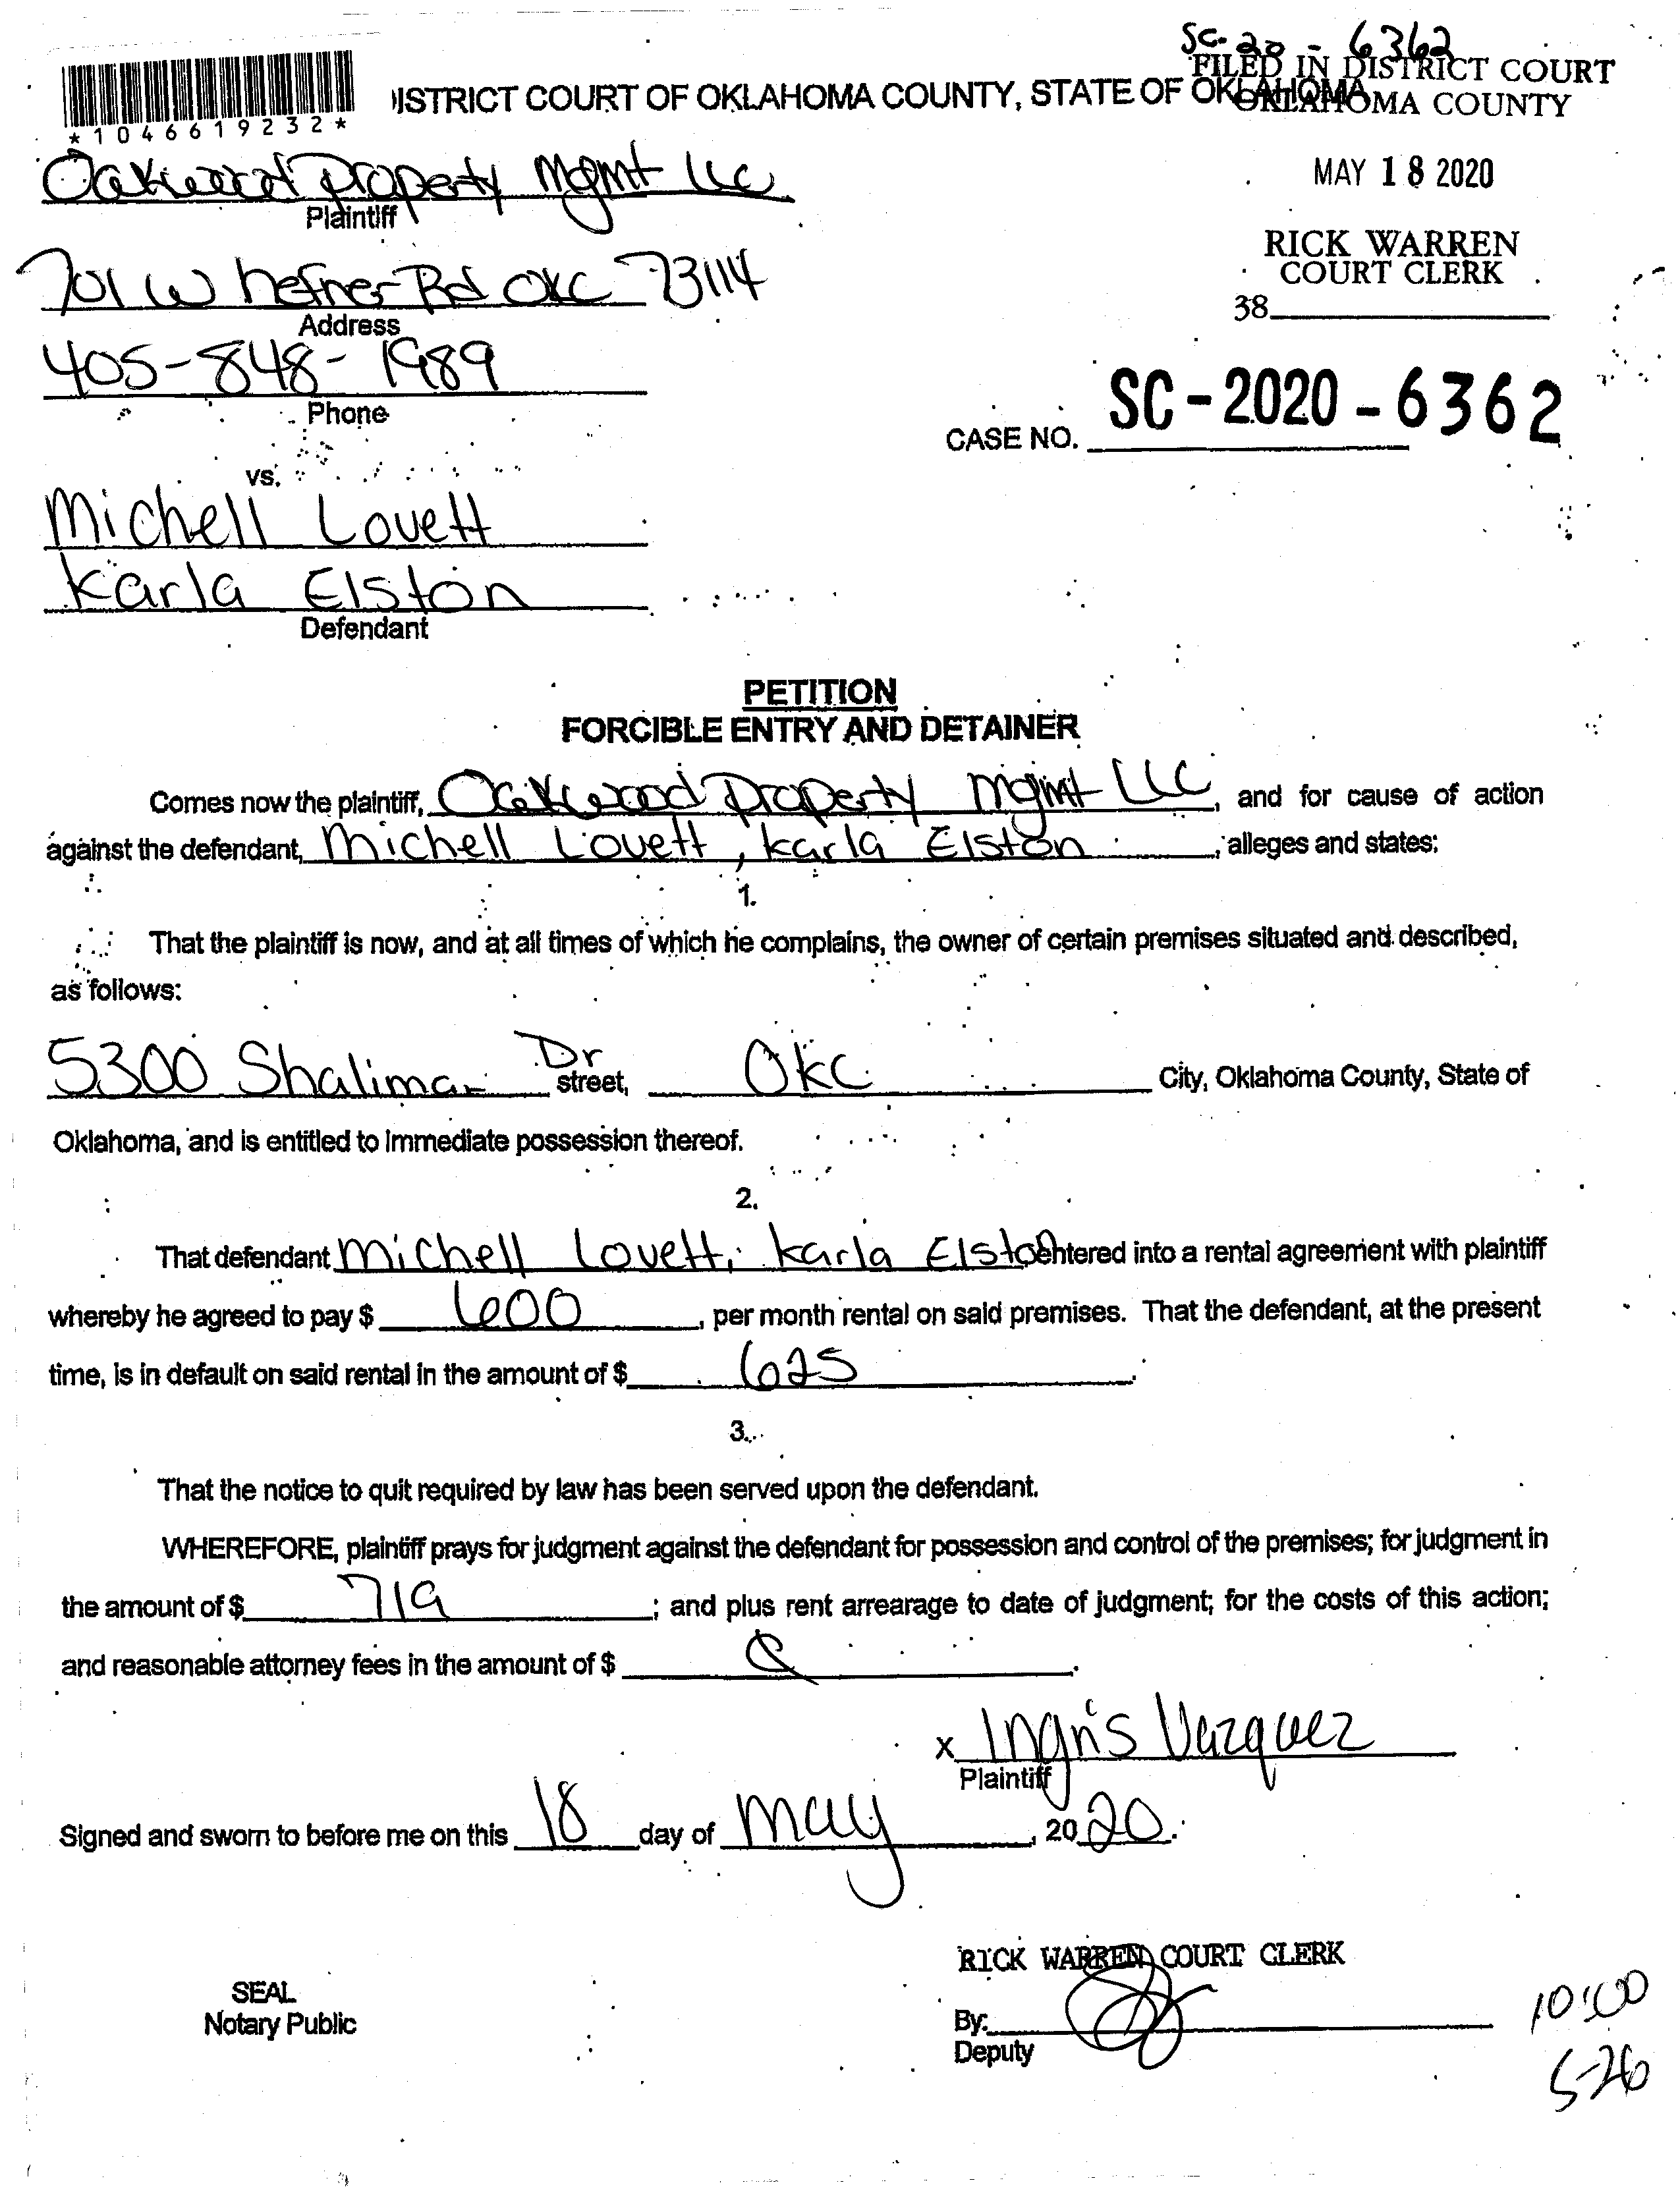 SC-20-6362
FILED IN DISTRICT COURT
OKLAHOMA COUNTY
*1046619232*
ISTRICT COURT OF OKLAHOMA COUNTY, STATE OF OKLAHOMA
MAY 18 2020
Oakwood Property Mgmt LLC
Plaintiff
RICK WARREN
COURT CLERK
38
701 W hefner Rd OKC 73114
Address
405-848-1989
Phone
CASE NO. SC-2020-6362
vs.
Michell Lovett
Karla Elston
Defendant
PETITION
FORCIBLE ENTRY AND DETAINER
Comes now the plaintiff, Oakwood Property Mgmt LLC, and for cause of action
against the defendant, Michell Lovett, Karla Elston, alleges and states:
1.
That the plaintiff is now, and at all times of which he complains, the owner of certain premises situated and described,
as follows:
5300 Shalimar Dr street, OKC City, Oklahoma County, State of
Oklahoma, and is entitled to immediate possession thereof.
2.
That defendant Michell Lovett, Karla Elston entered into a rental agreement with plaintiff
whereby he agreed to pay $ 600, per month rental on said premises. That the defendant, at the present
time, is in default on said rental in the amount of $ 625.
3.
That the notice to quit required by law has been served upon the defendant.
WHEREFORE, plaintiff prays for judgment against the defendant for possession and control of the premises; for judgment in
the amount of $ 719; and plus rent arrearage to date of judgment; for the costs of this action;
and reasonable attorney fees in the amount of $
X Ingris Vazquez
Plaintiff
Signed and sworn to before me on this 18 day of May, 2020.
RICK WARREN COURT CLERK
SEAL
Notary Public
By:
Deputy
10:00
5-26